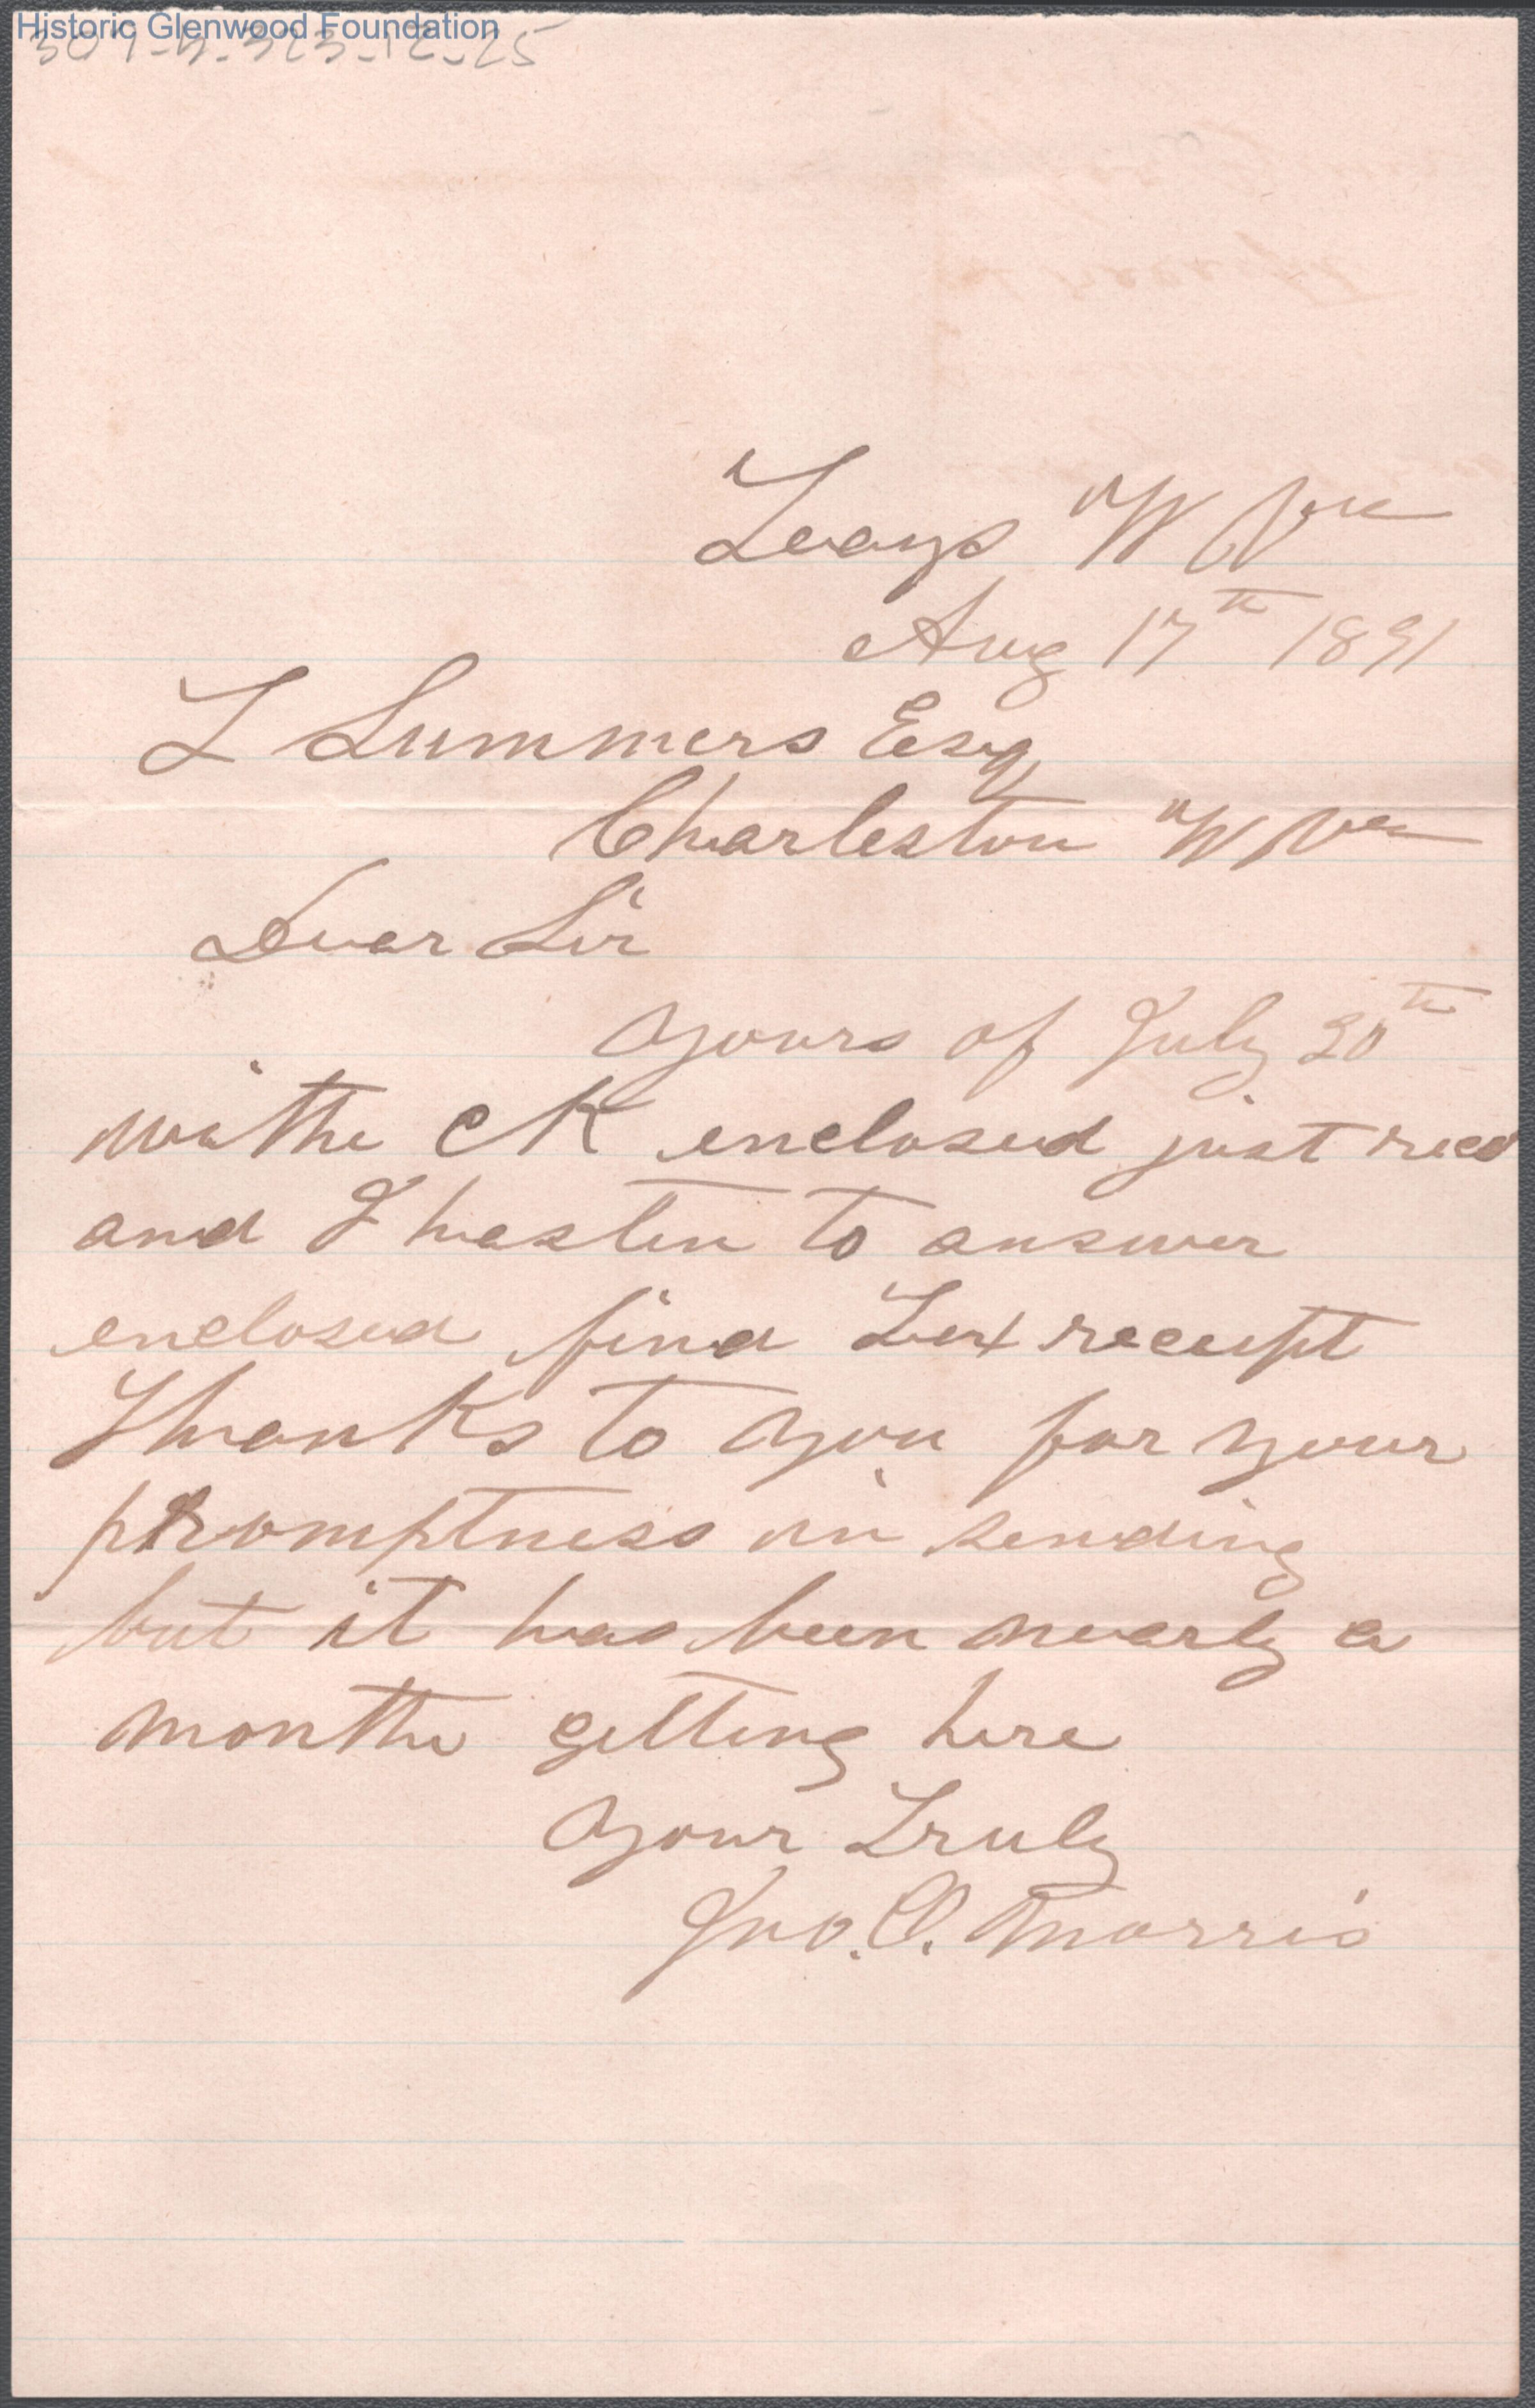 Historic Glenwood Foundation
Teays W Va
Aug 17th 1891
L Summers Esq
Charleston W Va
Dear Sir
Yours of July 20th
withe CK enclosed just recd
and I hasten to answer
enclosed find Tax receipt
Thanks to you for your
promptness in sending
but it has been nearly a
monthe getting here
Your Truly
Jno. O. Morris